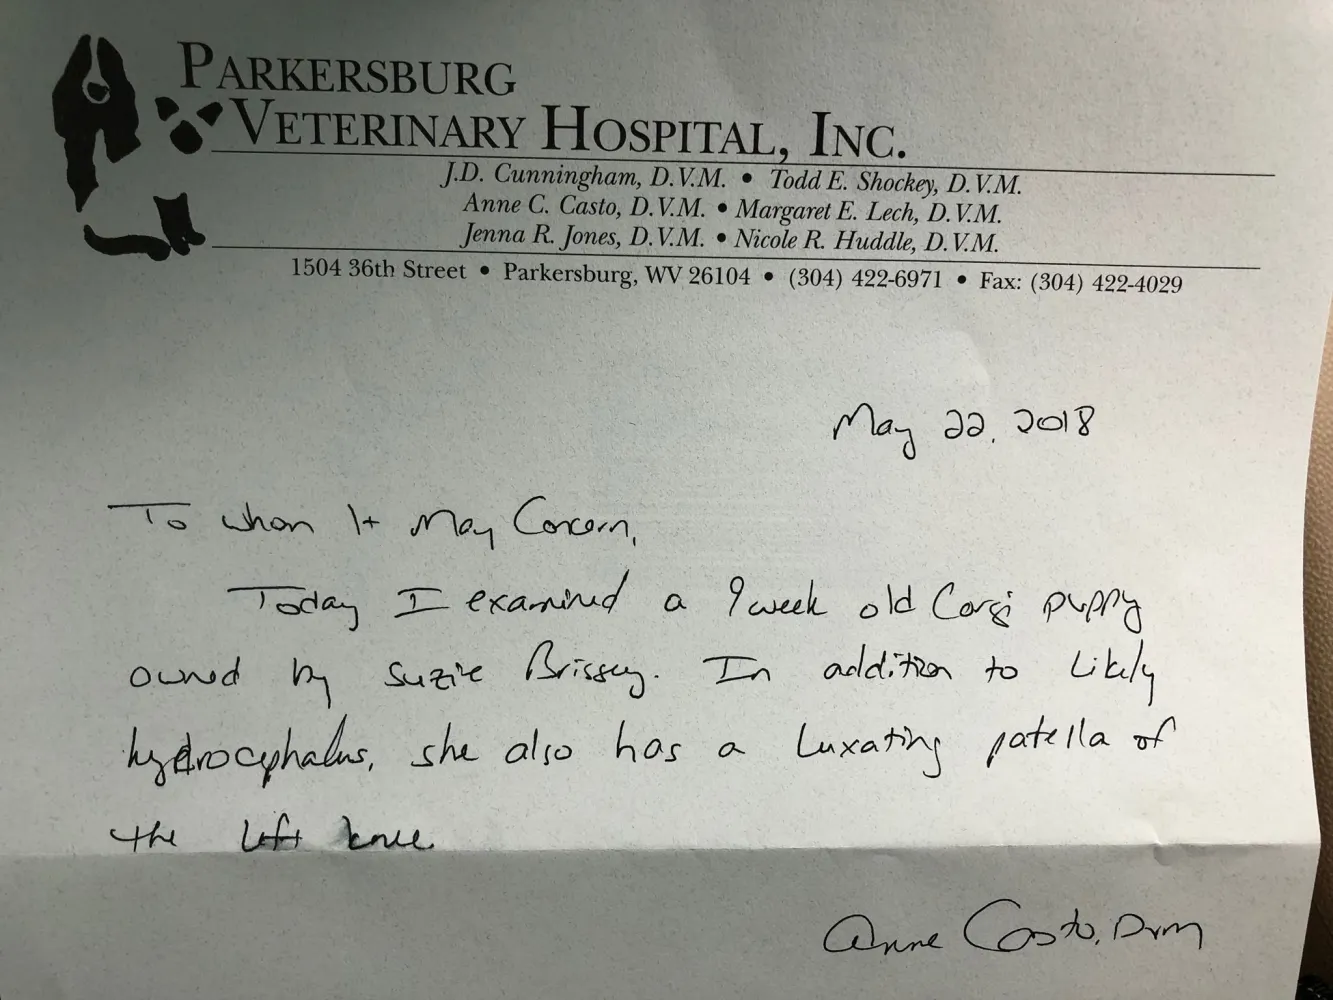 PARKERSBURG
VETERINARY HOSPITAL, INC.
J.D. Cunningham, D.V.M. • Todd E. Shockey, D.V.M.
Anne C. Casto, D.V.M. • Margaret E. Lech, D.V.M.
Jenna R. Jones, D.V.M. • Nicole R. Huddle, D.V.M.
1504 36th Street • Parkersburg, WV 26104 • (304) 422-6971 • Fax: (304) 422-4029
May 22, 2018
To Whom It May Concern,
Today I examined a 9 week old Corgi puppy
owned by Suzie Brissey. In addition to likely
hydrocephalus, she also has a luxating patella of
the left knee.
Anne Casto, DVM